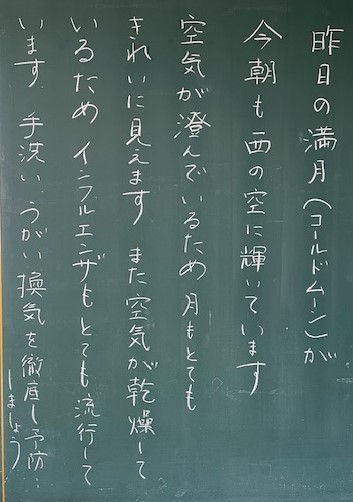 昨日の満月(コールドムーン)が
今朝も西の空に輝いています
空気が澄んでいるため月もとても
きれいに見えます また空気が乾燥して
いるため インフルエンザもとても流行して
います 手洗い うがい 換気を徹底し予防
しましょう